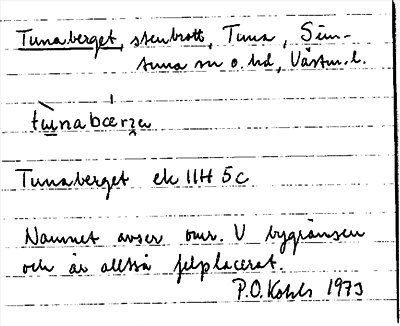 Tunaberget, stenbrott, Tuna, Sim-
tuna sn o. hd, Västm. l.
tùnabær̥ze
Tunaberget ek 11H 5c
Namnet avser omr. V bygränsen
och är alltså felplacerat.
P.O. Kohls 1973